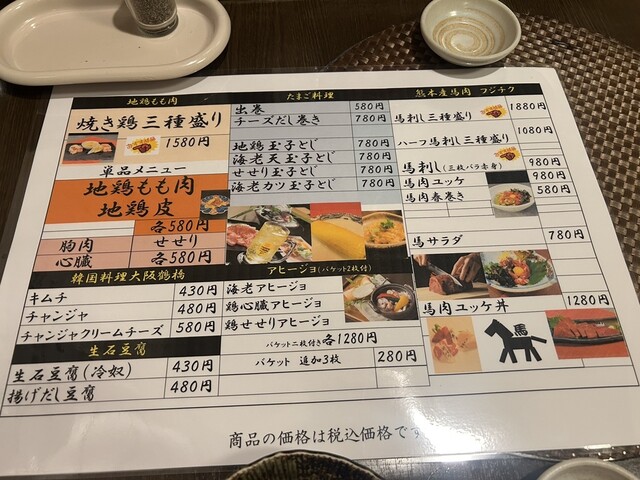 地鶏もも肉
焼き鶏三種盛り
1580円
単品メニュー
地鶏もも肉
地鶏皮
各580円
胸肉 せせり
心臓 各580円
韓国料理大阪鶴橋
キムチ 430円
チャンジャ 480円
チャンジャクリームチーズ 580円
生石豆腐
生石豆腐(冷奴) 430円
揚げだし豆腐 480円
たまご料理
出巻 580円
チーズだし巻き 780円
地鶏玉子とじ 780円
海老天玉子とじ 780円
せせり玉子とじ 780円
海老カツ玉子とじ 780円
アヒージョ(バケット2枚付)
海老アヒージョ
鶏心臓アヒージョ
鶏せせりアヒージョ
バケット二枚付き各1280円
バケット 追加3枚 280円
熊本産馬肉 フジチク
馬刺し三種盛り 1880円
ハーフ馬刺し三種盛り 1080円
馬刺し(三枚バラ赤身) 980円
馬肉ユッケ 980円
馬肉春巻き 580円
馬サラダ 780円
馬肉ユッケ丼 1280円
馬
商品の価格は税込価格です